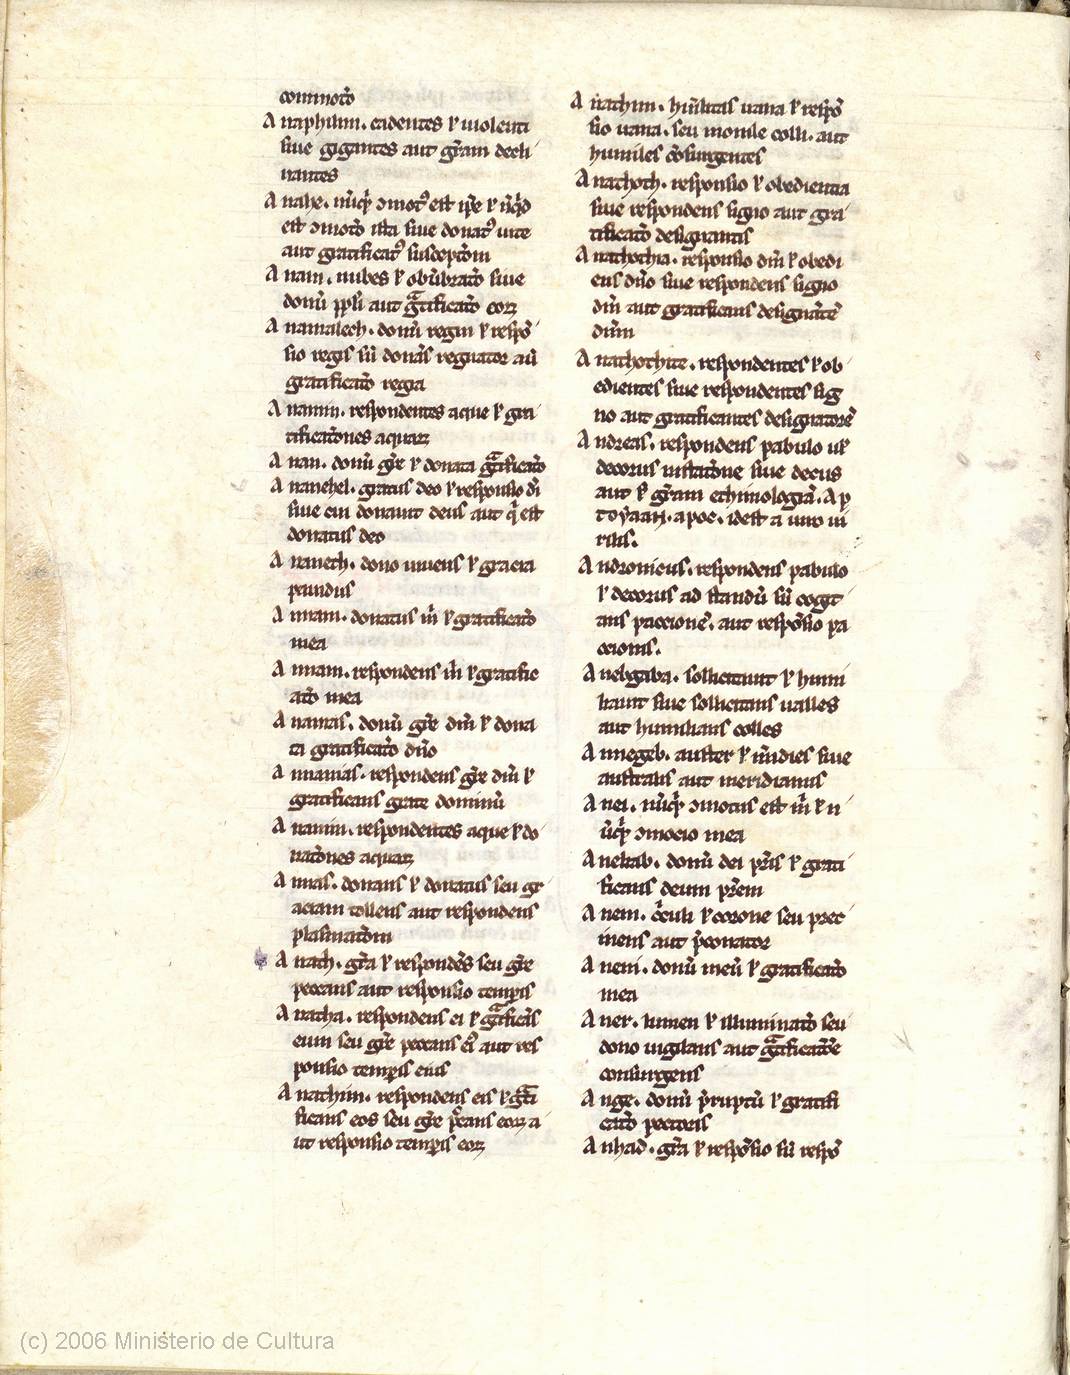 commotō
Anaphilim. cadentes ł uiolenti
siue gigantes aut gr̄am decli
nantes
Anahe. nūq̄ ↄmotꝰ est ip̄e ł nūq̄d
est ↄmotō ista siue donatꝰ uite
aut gratificatꝰ susceptōm
Anam. nubes ł obūbratō siue
donū pp̄li aut gͣtificatō eoꝝ
Anamalech. donū regin ł respō
sio regis siū donās regnator aū
gratificatō regia
Anamin. respondentes aque ł gra
tificatōnes aquaꝝ
Anan. donū gr̄e ł donata gͣtificatō
Ananehel. gratus deo ł responsio dī
siue cui donauit deus aut q̄ est
donatus deo
Ananech. dono uiuens ł gracia
pandus
Anani. donatus m̄ ł gratificatō
mea
Anani. respondens m̄ ł gratific
atō mea
Ananias. donū gr̄e dn̄i ł dona
ta gratificatō dn̄o
Ananias. respondens gr̄e dn̄i ł
gratificans grate dominū
Anamin. respondentes aque ł do
natōnes aquaꝝ
Anias. donans ł donatus seu gr
aciam tollens aut respondens
plasmatōm
Anath. gr̄a ł respondēs seu gr̄e
peccans aut responsio temp̄is
Anatha. respondens ei ł gͣtificās
eum seu gr̄e peccans eꝰ aut res
ponsio temp̄is eius
Anathim. respondens eis ł gͣti
ficans eos seu gr̄e pc̄cans eoꝝ a
ut responsio temp̄is eoꝝ
Anathim. hūilitas uana ł respō
sio uana. seu monile colli. aut
humiles cōsurgentes
Anathoth. responsio ł obedientia
siue respondens signo aut gra
tificatō designantis
Anathothia. responsio dn̄i ł obedi
ens dn̄o siue respondens signo
dn̄i aut gratificans designātē
dn̄m
Anathothite. respondentes ł ob
edientes siue respondentes sig
no aut gratificantes designatorē
Andreas. respondens pabulo uł
decorus instatōne siue decus
aut ł gr̄am ethimologiā. A p
toyaan. apoe. idest a uiro ui
rilis.
Andronicus. respondens pabulo
ł decorus ad standū siū cogit
ans paccionē. aut respōsio pa
ccionis.
Anebgaba. sollicitauit ł humi
liauit siue sollicitans ualles
aut humilians colles
Annegeb. auster ł m̄idies siue
australis aut meridianus
Anei. nūq̄ ↄmotus est m̄ ł n
ūq̄ ↄmocio mea
Aneliab. donū dei pr̄is ł grati
ficans deum pr̄em
Anem. oc̄culi ł corone seu prec
inens aut p̄conator
Aneni. donū meū ł gratificatō
mea
Aner. lumen ł illuminatō seu
dono uigilans aut gͣtificatōe
consurgens
Ange. donū p̄ruptū ł gratifi
catō pectoris
Anhad. gr̄a ł respōsio siū respō